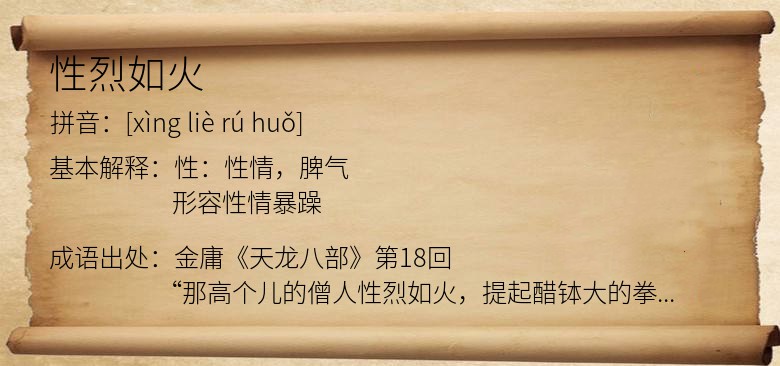 性烈如火
拼音：[xìng liè rú huǒ]
基本解释：性：性情，脾气
形容性情暴躁
成语出处：金庸《天龙八部》第18回
“那高个儿的僧人性烈如火，提起醋钵大的拳...